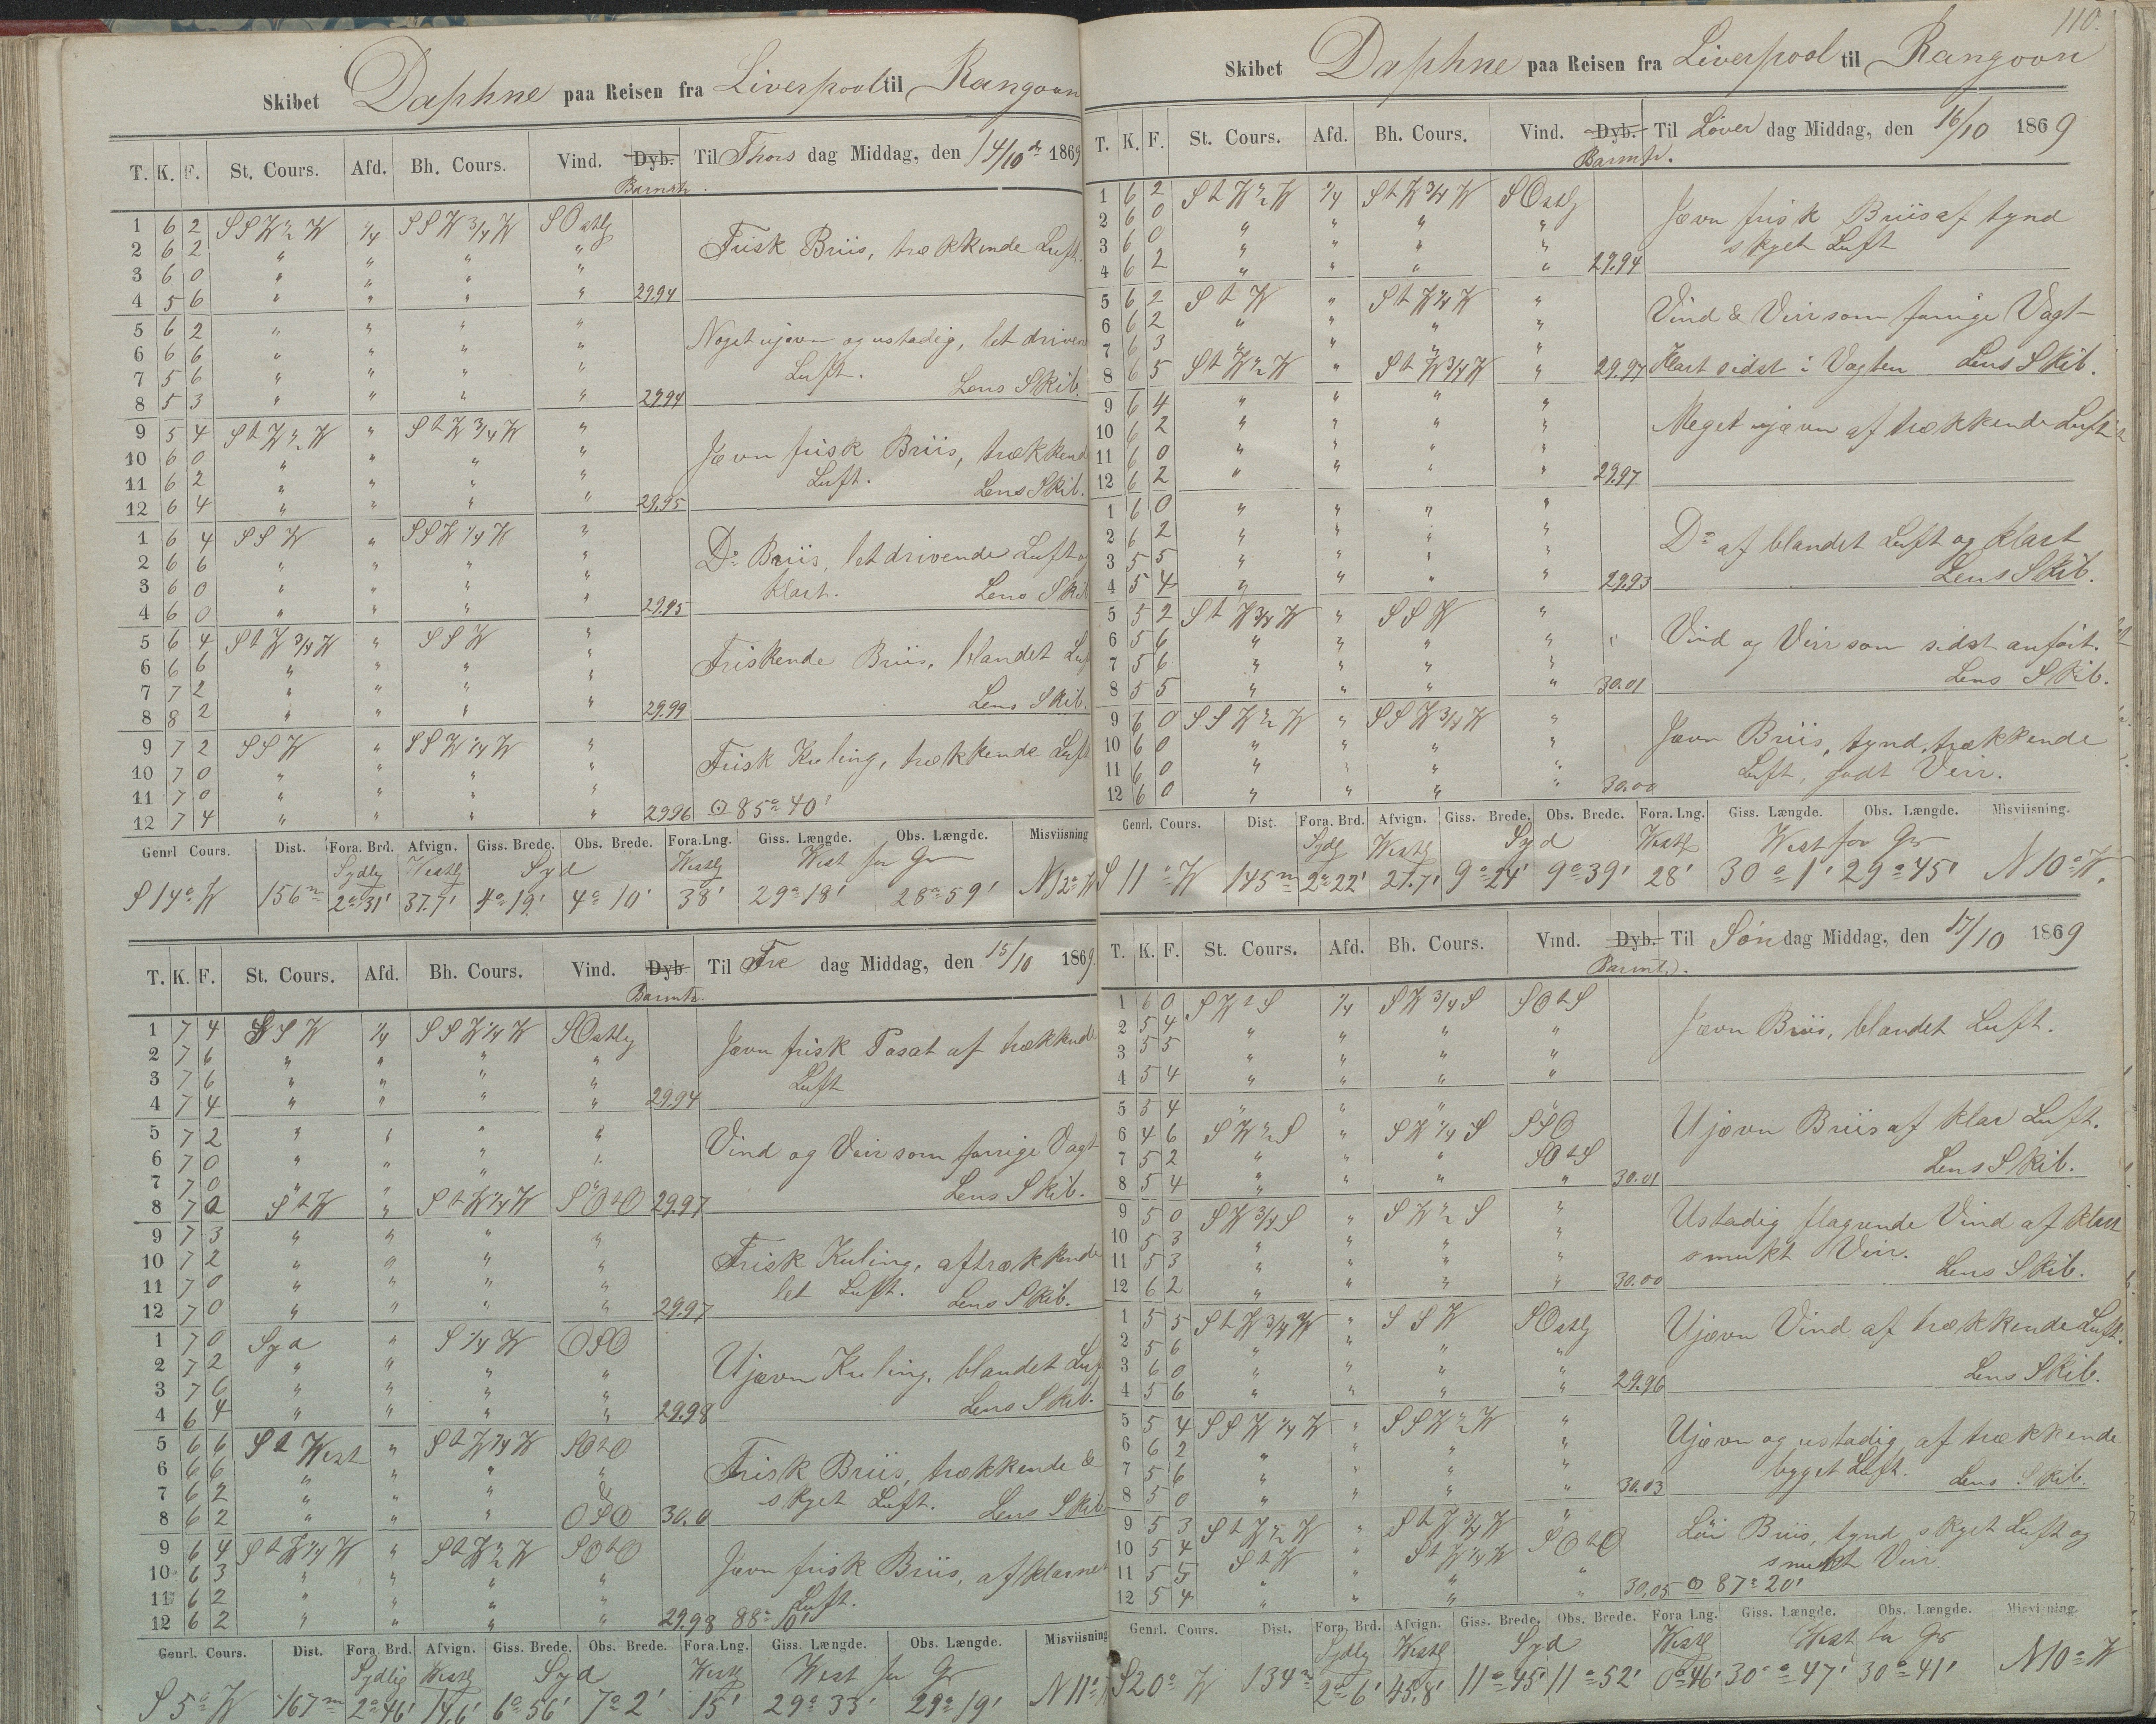 Skibet Daphne paa Reisen fra Liverpool til Rangoon
T. K. F. St. Cours. Afd. Bh. Cours. Vind. Dyb. Barmtr. Til Thors dag Middag, den 14/10 de 1869
1 6 2 SSW ½ W ¼ SSW ¾ W SOstlg
2 6 2 " " " " Frisk Briis, trækkende Luft.
3 6 0 " " " "
4 5 6 " " " " 29.94
5 6 2 " " " "
6 6 6 " " " " Noget ujævn og ustadig, let driven
7 5 6 " " " " Luft. Lens Skib.
8 5 3 " " " " 29.94
9 5 4 S t W ½ W " S t W ¾ W "
10 6 0 " " " " Jævn frisk Briis, trækkend
11 6 2 " " " " Luft. Lens Skib.
12 6 4 " " " " 29.95
1 6 4 SSW " SSW ¼ W "
2 6 6 " " " " Do Briis, let drivende Luft og
3 6 0 " " " " klart. Lens Skib
4 6 0 " " " " 29.95
5 6 4 S t W ¾ W " SSW "
6 6 6 " " " " Friskende Briis, blandet Luf
7 7 2 " " " "
8 8 2 " " " " 29.99 Lens Skib.
9 7 2 SSW " SSW ¼ W "
10 7 0 " " " " Frisk Kuling, trækkende Luft
11 7 0 " " " "
12 7 4 " " " " 29.96 ⊙ 85° 40'
Genrl Cours. Dist. Fora. Brd. Afvign. Giss. Brede. Obs. Brede. Fora. Lng. Giss. Længde. Obs. Længde. Misviisning
Sydlg Westlg Syd Westlg West for Gr
S 14° W 156 m 2° 31' 37.7' 4° 19' 4° 10' 38' 29° 18' 28° 59' N 12° W
T. K. F. St. Cours. Afd. Bh. Cours. Vind. Dyb. Barmtr. Til Fre dag Middag, den 15/10 1869.
1 7 4 SSW ¼ SSW ¼ W SOstlg
2 7 6 " " " " Jævn frisk Pasat af trækkende
3 7 6 " " " " Luft
4 7 4 " " " " 29.94
5 7 2 " " " "
6 7 0 " " " " Vind og Veir som forrige Vagt
7 7 0 " " " " Lens Skib.
8 7 0 S t W " S t W ¼ W SO t O 29.97
9 7 3 " " " "
10 7 2 " " " " Frisk Kuling, af trækkende
11 7 0 " " " " let Luft. Lens Skib.
12 7 0 " " " " 29.97
1 7 0 Syd " S ¼ W OSO
2 7 2 " " " " Ujævn Kuling, blandet Luf
3 7 6 " " " "
4 6 4 " " " " 29.98 Lens Skib.
5 6 6 S t West " S t W ¼ W SO t O
6 6 6 " " " " Frisk Briis, trækkende &
7 6 2 " " " & skyet Luft. Lens Skib
8 6 2 " " " OSO 30.0
9 6 4 S t W ¼ W " S t W ½ W SO t O
10 6 3 " " " " Jævn frisk Briis, af klarnet
11 6 2 " " " " Luft.
12 6 2 " " " " 29.98 88° 10'
Genrl. Cours. Dist. Fora. Brd. Afvign. Giss. Brede. Obs. Brede. Fora. Lng. Giss. Længde. Obs. Længde. Misviisning
Sydlig Westlg Syd Westlg West for Gr
S 5° W 167 m 2° 46' 14.6' 6° 56' 7° 2' 15' 29° 33' 29° 19' N 11°
110.
Skibet Daphne paa Reisen fra Liverpool til Rangoon
T. K. F. St. Cours. Afd. Bh. Cours. Vind. Dyb. Barmtr. Til Löver dag Middag, den 16/10 1869
1 6 2 S t W ½ W ¼ S t W ¾ W SOstlg
2 6 0 " " " " Jævn frisk Briis af tynd
3 6 0 " " " " skyet Luft
4 6 2 " " " " 29.94
5 6 2 S t W " S t W ¼ W "
6 6 2 " " " " Vind & Veir som forrige Vagt
7 6 3 " " " "
8 6 5 S t W ½ W " S t W ¾ W " 29.97 Klart sidst i Vagten Lens Skib.
9 6 4 " " " "
10 6 2 " " " " Meget ujævn af trækkende Luft
11 6 0 " " " "
12 6 2 " " " " 29.97
1 6 0 " " " "
2 6 2 " " " " Do af blandet Luft og klart
3 5 5 " " " "
4 5 4 " " " " 29.93 Lens Skib.
5 5 2 S t W ¾ W " SSW "
6 5 6 " " " " " Vind og Veir som sidst anført.
7 5 6 " " " "
8 5 5 " " " " 30.01 Lens Skib.
9 6 0 SSW ½ W " SSW ¾ W "
10 6 0 " " " " Jævn Briis, tynd, trækkende
11 6 0 " " " " Luft, godt Veir.
12 6 0 " " " " 30.00
Genrl. Cours. Dist. Fora. Brd. Afvign. Giss. Brede. Obs. Brede. Fora. Lng. Giss. Længde. Obs. Længde. Misviisning.
Sydlg Westlg Syd Westlg West for Gr
S 11° W 145 m 2° 22' 27.7' 9° 24' 9° 39' 28' 30° 1' 29° 45' N 10° W.
T. K. F. St. Cours. Afd. Bh. Cours. Vind. Dyb. Barmtr. Til Søn dag Middag, den 17/10 1869
1 6 0 SW t S ¼ SW ¾ S SO t S
2 5 4 " " " " Jævn Briis, blandet Luft.
3 5 5 " " " "
4 5 4 " " " "
5 5 4 " " " "
6 4 6 SW ½ S " SW ¼ S SSO Ujævn Briis af klar Luft.
7 5 2 " " " SO t S
8 5 4 " " " " 30.01 Lens Skib.
9 5 0 SW ¾ S " SW ½ S "
10 5 3 " " " " Ustadig flagrende Vind af klart
11 5 3 " " " " smukt Veir.
12 6 2 " " " " 30.00 Lens Skib.
1 5 5 S t W ¾ W " SSW SOstlg
2 5 6 " " " " Ujævn Vind af trækkende Luft.
3 6 0 " " " "
4 5 6 " " " " 29.96 Lens Skib.
5 5 4 SSW ¼ W " SSW ½ W "
6 6 2 " " " " Ujævn og ustadig af trækkende
7 5 6 " " " " bygget Luft. Lens Skib.
8 5 0 " " " " 30.03
9 5 3 S t W ½ W " S t W ¾ W "
10 5 4 S t W " S t W ¼ W SO t O Löi Briis, tynd skyet Luft og
11 5 5 " " " smukt Veir.
12 5 4 " " " " 30.05 ⊙ 87° 20'
Genrl. Cours. Dist. Fora. Brd. Afvign. Giss. Brede. Obs. Brede. Fora Lng. Giss. Længde. Obs. Længde. Misviisning.
Sydlg Westlg Syd Westlg West fra Gr
S 20° W 134 m 2° 6' 45.8' 11° 45' 11° 52' 0° 46' 30° 47' 30° 41' N 10° W